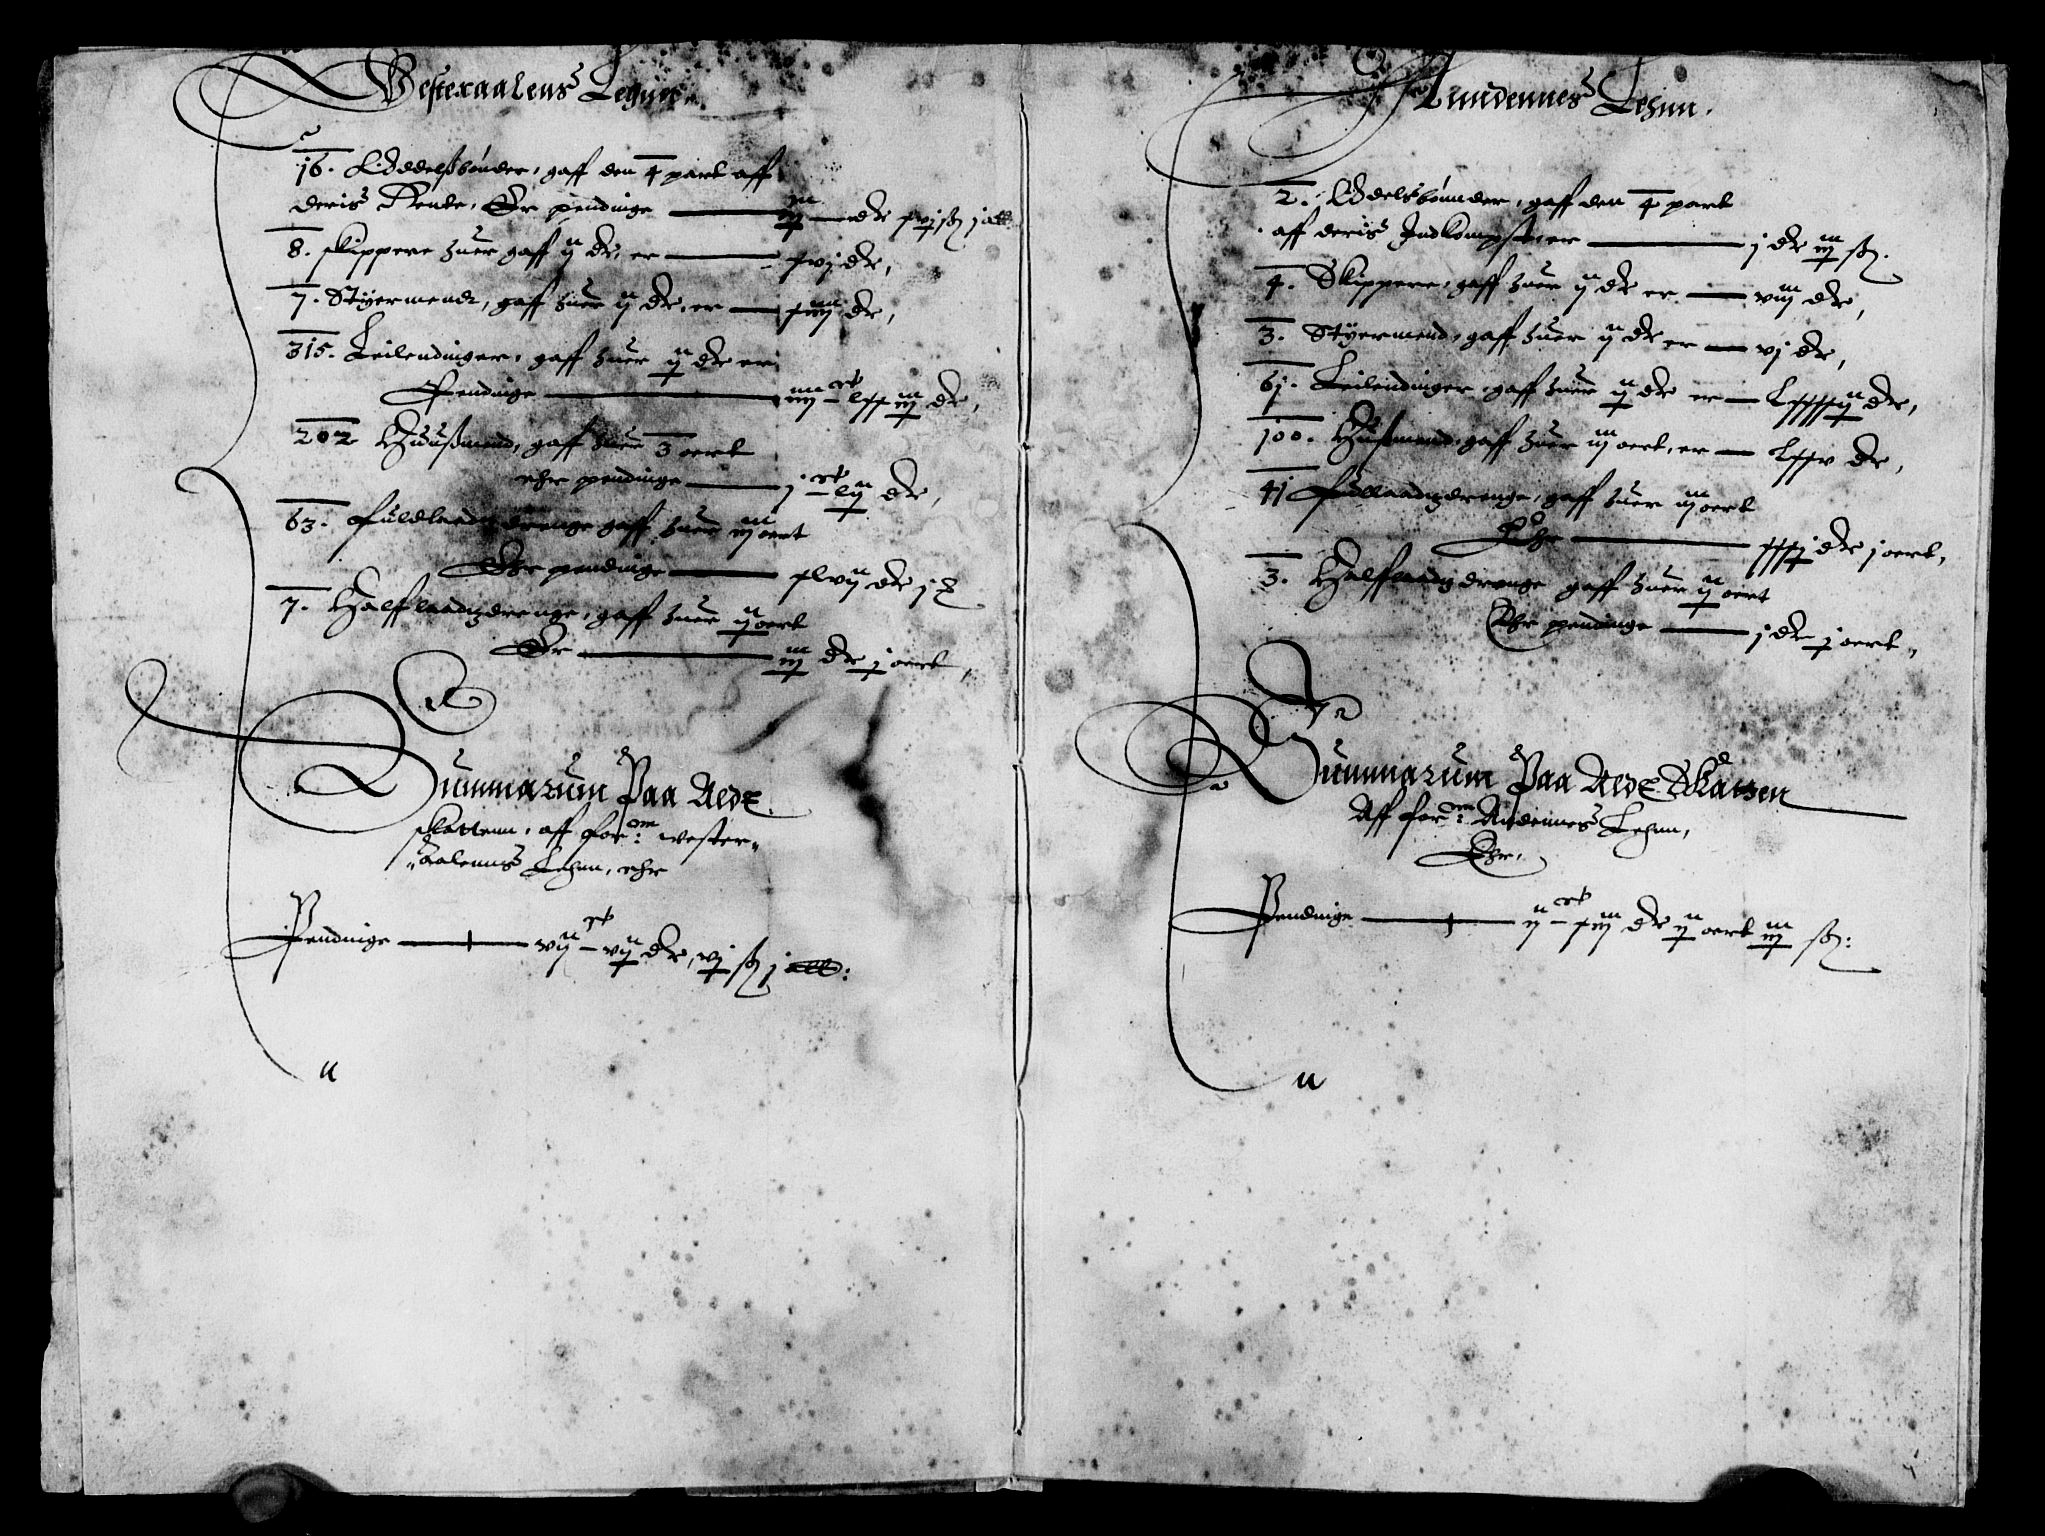 Vesteraalens Lehnn.
16. Oddelsbønder, gaff den 4 part aff
deris Rente, Er pendinge — iij dr xvj ß j alb
8. skippere huer gaff ij dr, er — xvj dr,
7. Styermend, gaff huer ij dr, er — xiiij dr,
315. Leilendinger, gaff huer ij dr er
Pendinge — iiij c lxx iij dr,
202 Huusmend, gaff huer 3 oert
ehr pendinge — j c lj dr,
63. Fuldlaadz drenge gaff huer iij oert
Ehr pendinge — xlvij dr j
7. Halfflaadz drenge, gaff huer ij oert
Er — iij dr j oert,
Summarum Paa
skattenn, aff for: ne wester-
aalenns Lehnn, ehr
Pendinge — vij c vij dr, vj ß j alb:
Anndennes Lehnn.
2. Oddelsbønnder, gaff den 4 part
aff deris Indkompst, er — j dr iij ß.
4. Skippere, gaff huer ij dr er — viij dr,
3. Styermend, gaff huer ij dr er — vj dr,
61. Leilendinger, gaff huer ij dr er — lxxxxij dr,
100. Husmend, gaff huer iij oert, er — lxxv dr,
41 Fuldlaadz drenge, gaff huer iij oert
Ehr — xxx dr j oert,
3. Halfflaadz drenge gaff huer ij oert
Ehr pendinge — j dr j oert,
Summarum Paa Skatten
Aff for: ne Andennes Lehnn,
Ehr,
Pendinge — ij c xiij dr ij oert iij ß: